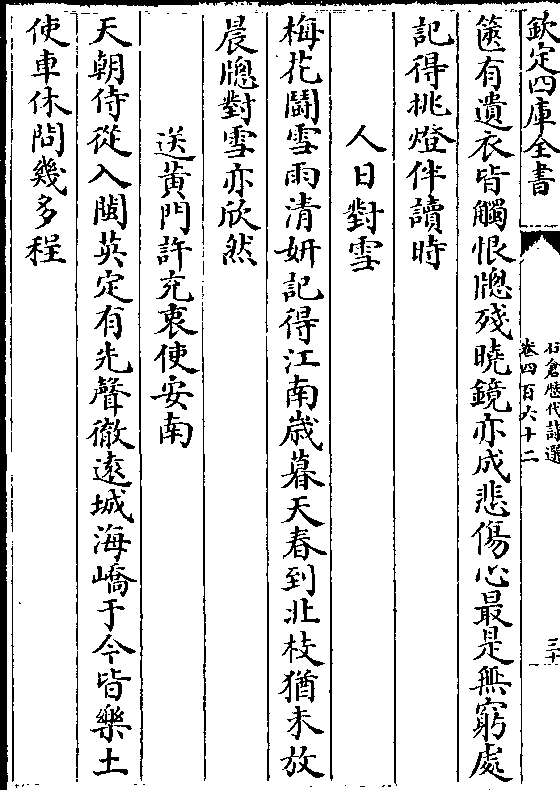 欽定四庫全書
石倉歷代詩選
卷四百六十二
三十
篋有遺衣皆觸恨牕殘曉鏡亦成悲傷心最是無窮處
記得挑燈伴讀時
人日對雪
梅花鬭雪兩清妍記得江南歲暮天春到北枝猶未放
晨牕對雪亦欣然
送黃門許充衷使安南
天朝侍從入閩英定有先聲徹遠城海嶠于今皆樂土
使車休問幾多程